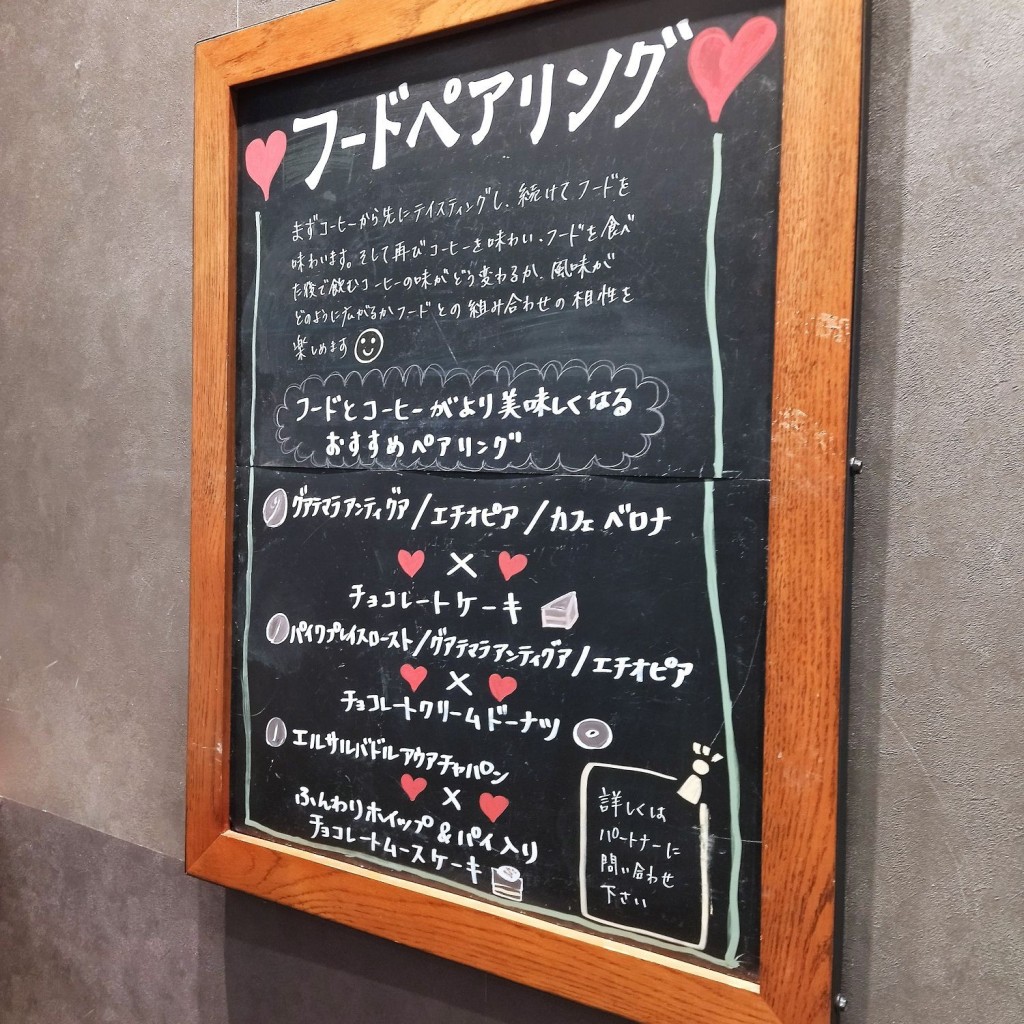 フードペアリング
まずコーヒーから先にテイスティングし、続けてフードを
味わいます。そして再びコーヒーを味わい、フードを食べ
た後で飲むコーヒーの味がどう変わるか、風味が
どのように広がるかフードとの組み合わせの相性を
楽しめます
フードとコーヒーがより美味しくなる
おすすめペアリング
グアテマラアンティグア/エチオピア/カフェベロナ
×
チョコレートケーキ
パイクプレイスロースト/グアテマラアンティグア/エチオピア
×
チョコレートクリームドーナツ
エルサルバドルアウアチャパン
×
ふんわりホイップ&パイ入り
チョコレートムースケーキ
詳しくは
パートナーに
問い合わせ
下さい